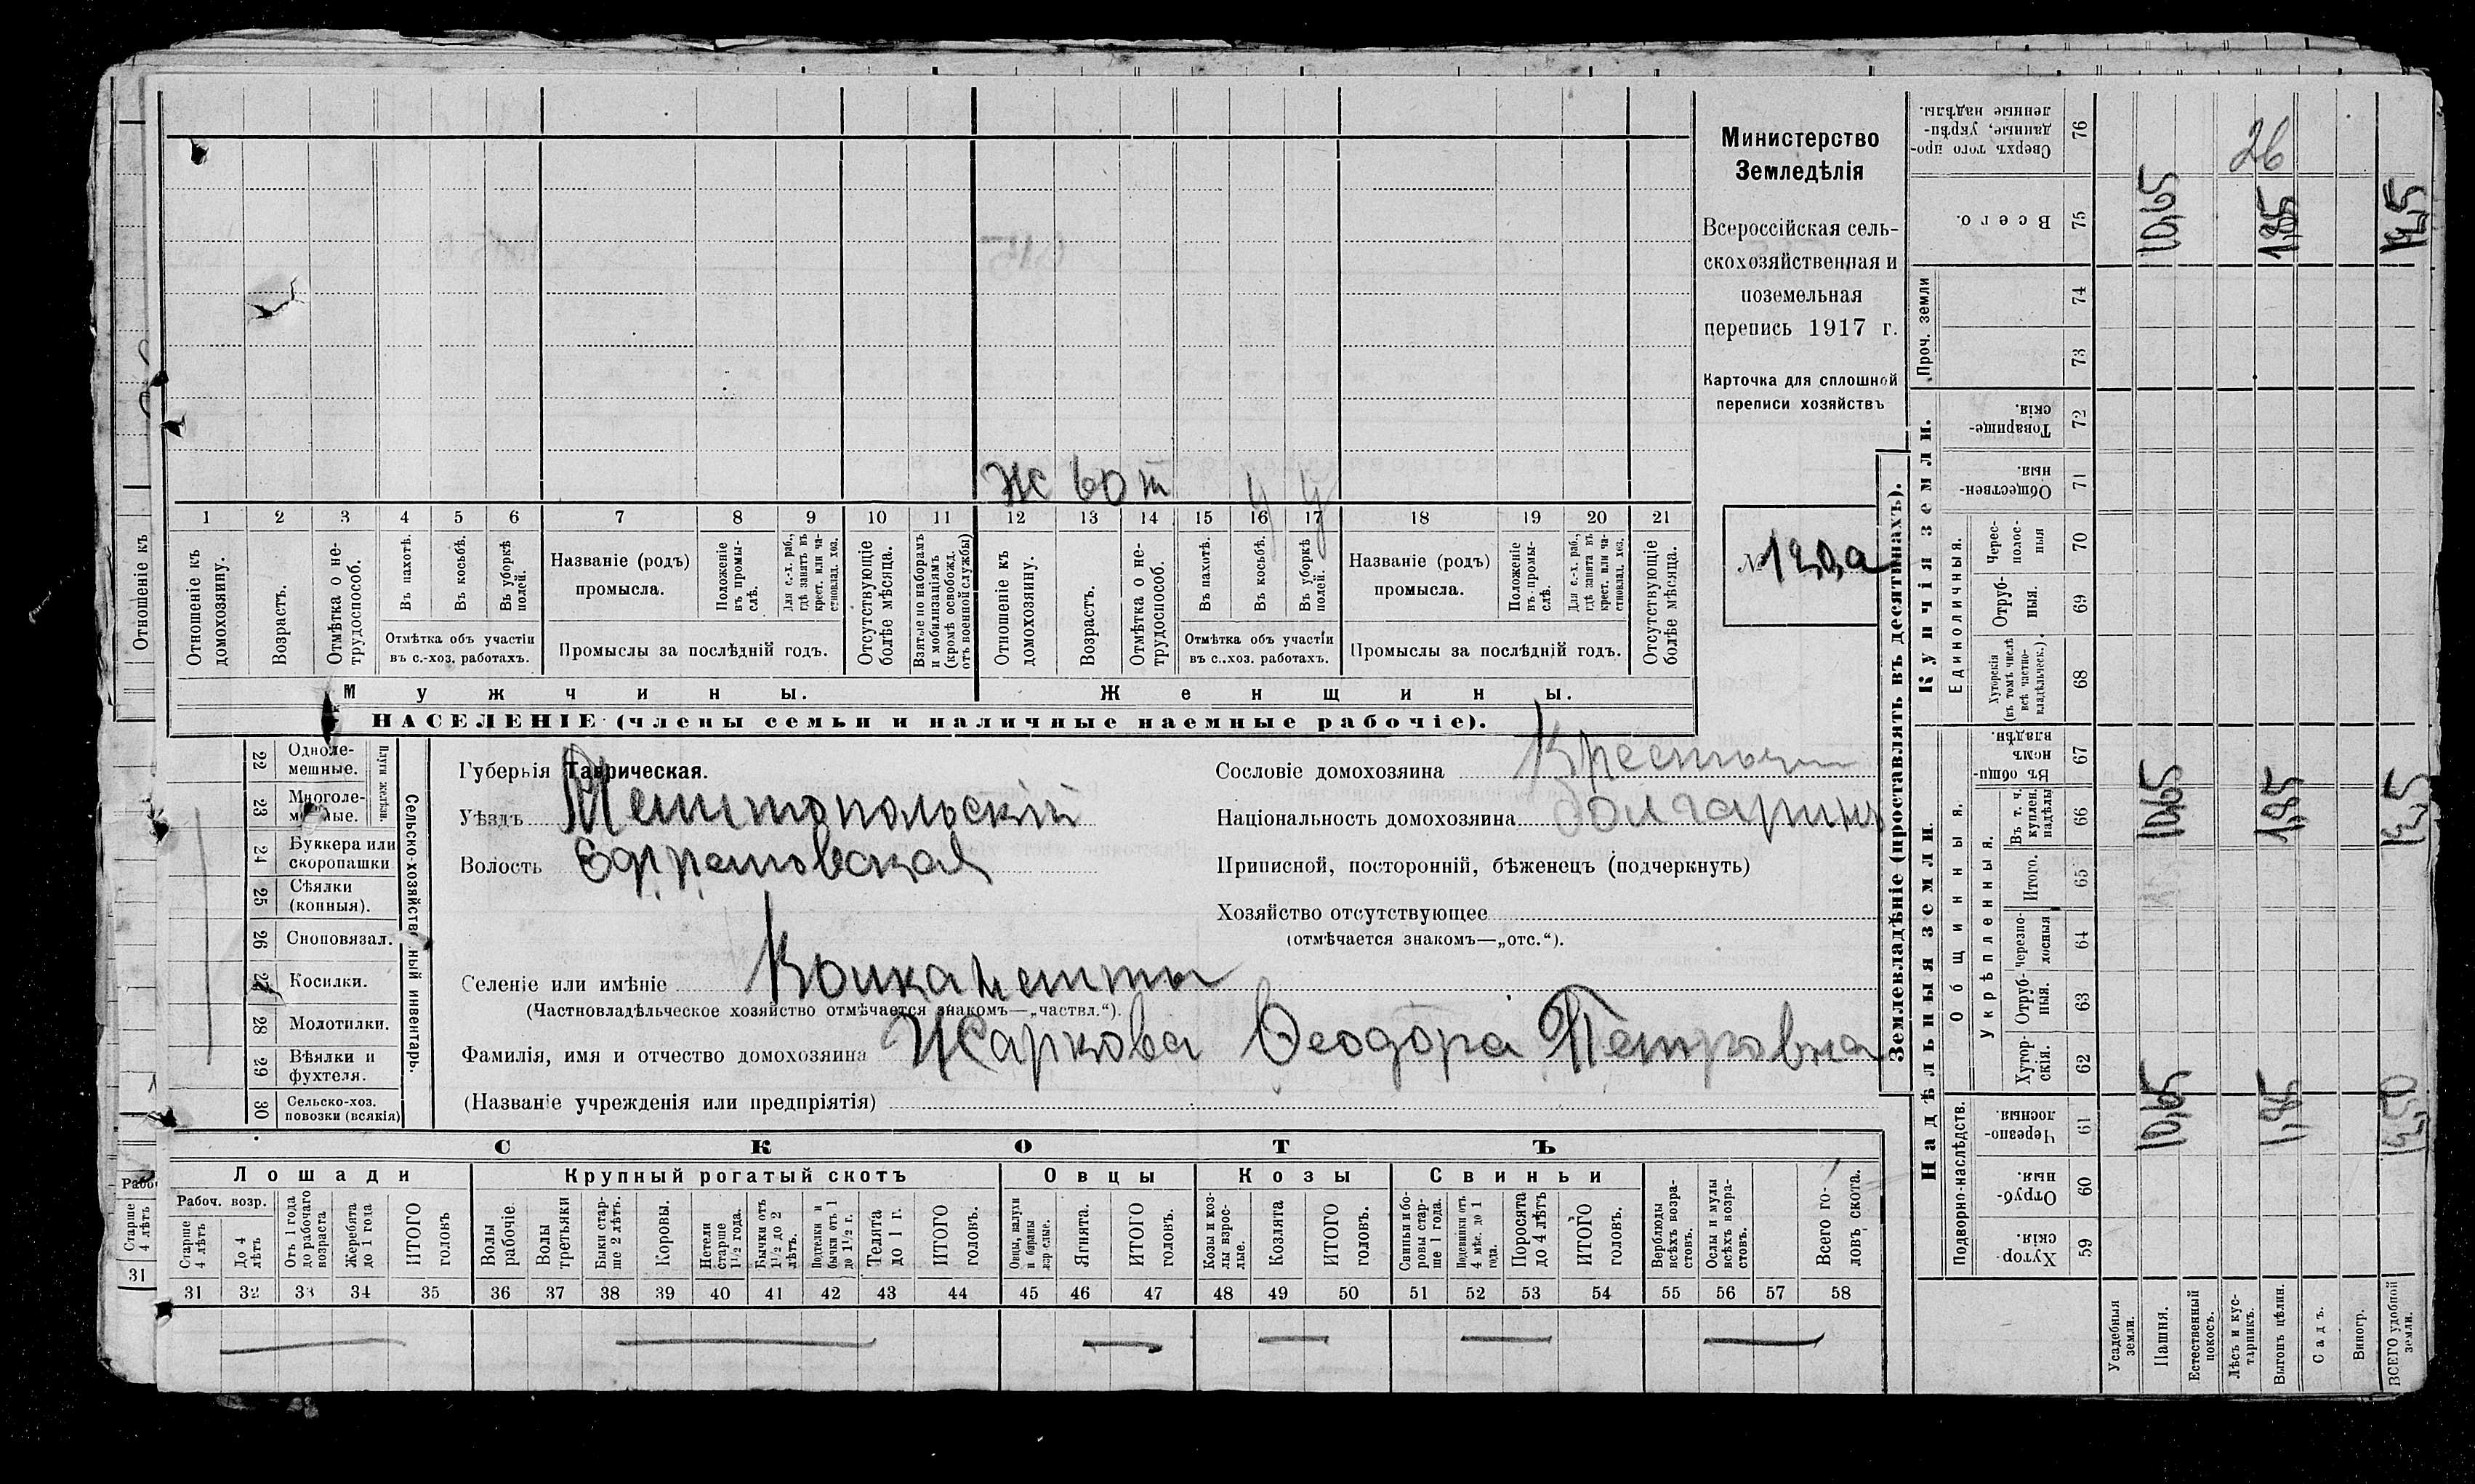 Министерство
Земледѣлія
Всероссійская сель-
скохозяйственная и
поземельная
перепись 1917 г.
Карточка для сплошной
переписи хозяйствъ
№
ж 60
1 2 3 4 5 6 7 8 9 10 11 12 13 14 15 16 17 18 19 20 21
Отношеніе къ домохозяину.
Возрастъ.
Отмѣтка о не-трудоспособ.
Въ пахотѣ.
Въ косьбѣ.
Въ уборкѣ полей.
Отмѣтка объ участіи
въ с.-хоз. работахъ.
Названіе (родъ)
промысла.
Положеніе въ промы-слѣ.
Для с.-х. раб., гдѣ занятъ въ крест. или ча-стновлад. хоз.
Промыслы за послѣдній годъ.
Отсутствующіе болѣе мѣсяца.
Взятые по наборамъ и мобилизаціямъ (кромѣ освобожд. отъ военной службы)
Отношеніе къ домохозяину.
Возрастъ.
Отмѣтка о не-трудоспособ.
Въ пахотѣ.
Въ косьбѣ.
Въ уборкѣ полей.
Отмѣтка объ участіи
въ с.-хоз. работахъ.
Названіе (родъ)
промысла.
Положеніе въ промы-слѣ.
Для с.-х. раб., гдѣ занята въ крест. или ча-стновлад. хоз.
Промыслы за послѣдній годъ.
Отсутствующіе болѣе мѣсяца.
Мужчины.
Женщины.
НАСЕЛЕНІЕ (члены семьи и наличные наемные рабочіе).
Сельско-хозяйственный инвентарь.
Плуги желѣзн.
22 Одноле-мешные.
23 Многоле-мешные.
24 Буккера или скоропашки
25 Сѣялки (конныя).
26 Сноповязал.
27 Косилки.
28 Молотилки.
29 Вѣялки и фухтеля.
30 Сельско-хоз. повозки (всякія)
Губернія Таврическая.
Уѣздъ Мелитопольскій
Волость Ефремовская
Сословіе домохозяина
Національность домохозяина болгаринъ
Приписной, посторонній, бѣженецъ (подчеркнуть)
Хозяйство отсутствующее
(отмѣчается знакомъ—„отс.“).
Селеніе или имѣніе
(Частновладѣльческое хозяйство отмѣчается знакомъ—„частвл.“).
Фамилія, имя и отчество домохозяина Жаркова Ѳеодора Петровна
(Названіе учрежденія или предпріятія)
СКОТЪ
Лошади Крупный рогатый скотъ Овцы Козы Свиньи
Рабоч. возр.
Старше 4 лѣтъ
До 4 лѣтъ
Отъ 1 года до рабочаго возраста
Жеребята до 1 года
ИТОГО головъ
Волы рабочіе.
Волы третьяки
Быки стар-ше 2 лѣтъ.
Коровы.
Нетели старше 1½ года.
Бычки отъ 1½ до 2 лѣтъ.
Подтелки и бычки отъ 1 до 1½ г.
Телята до 1 г.
ИТОГО головъ.
Овцы, валухи и бараны взрослые.
Ягнята.
ИТОГО головъ.
Козы и коз-лы взрос-лые.
Козлята
ИТОГО головъ.
Свиньи и бо-ровы стар-ше 1 года.
Подсвинки отъ 4 мѣс. до 1 года.
Поросята до 4 лѣтъ
ИТОГО головъ.
Верблюды всѣхъ возра-стовъ.
Ослы и мулы всѣхъ возра-стовъ.
Всего го-ловъ скота.
31 32 33 34 35 36 37 38 39 40 41 42 43 44 45 46 47 48 49 50 51 52 53 54 55 56 57 58
Землевладѣніе (проставлять въ десятинахъ).
Купчія земли.
Надѣльныя земли.
Сверхъ того про-данные, укрѣп-ленные надѣлы. 76
26
Всего. 75
10,65 1,85 12,5
Проч. земли 74 73
Товарище-скія. 72
Обществен-ныя. 71
Единоличныя.
Черес-полос-ныя 70
Отруб-ныя. 69
Хуторскія (въ томъ числѣ всѣ частно-владѣльческ.). 68
Общинныя.
Въ общи-номъ владѣн. 67
Въ т. ч. куплен. надѣлы 66
10,65 1,85 12,5
Укрѣпленныя.
Итого. 65
черезпо-лосныя 64
Отруб-ныя. 63
Хутор-скія. 62
Подворно-наслѣдств.
Черезпо-лосныя. 61
10,65 1,85 12,50
Отруб-ныя. 60
Хутор-скія. 59
Усадебныя земли.
Пашня.
Естественный покосъ.
Лѣсъ и кус-тарникъ.
Выгонъ цѣлин.
Садъ.
Виногр.
ВСЕГО удобной земли.
Отношеніе къ
Старше 4 лѣтъ
31